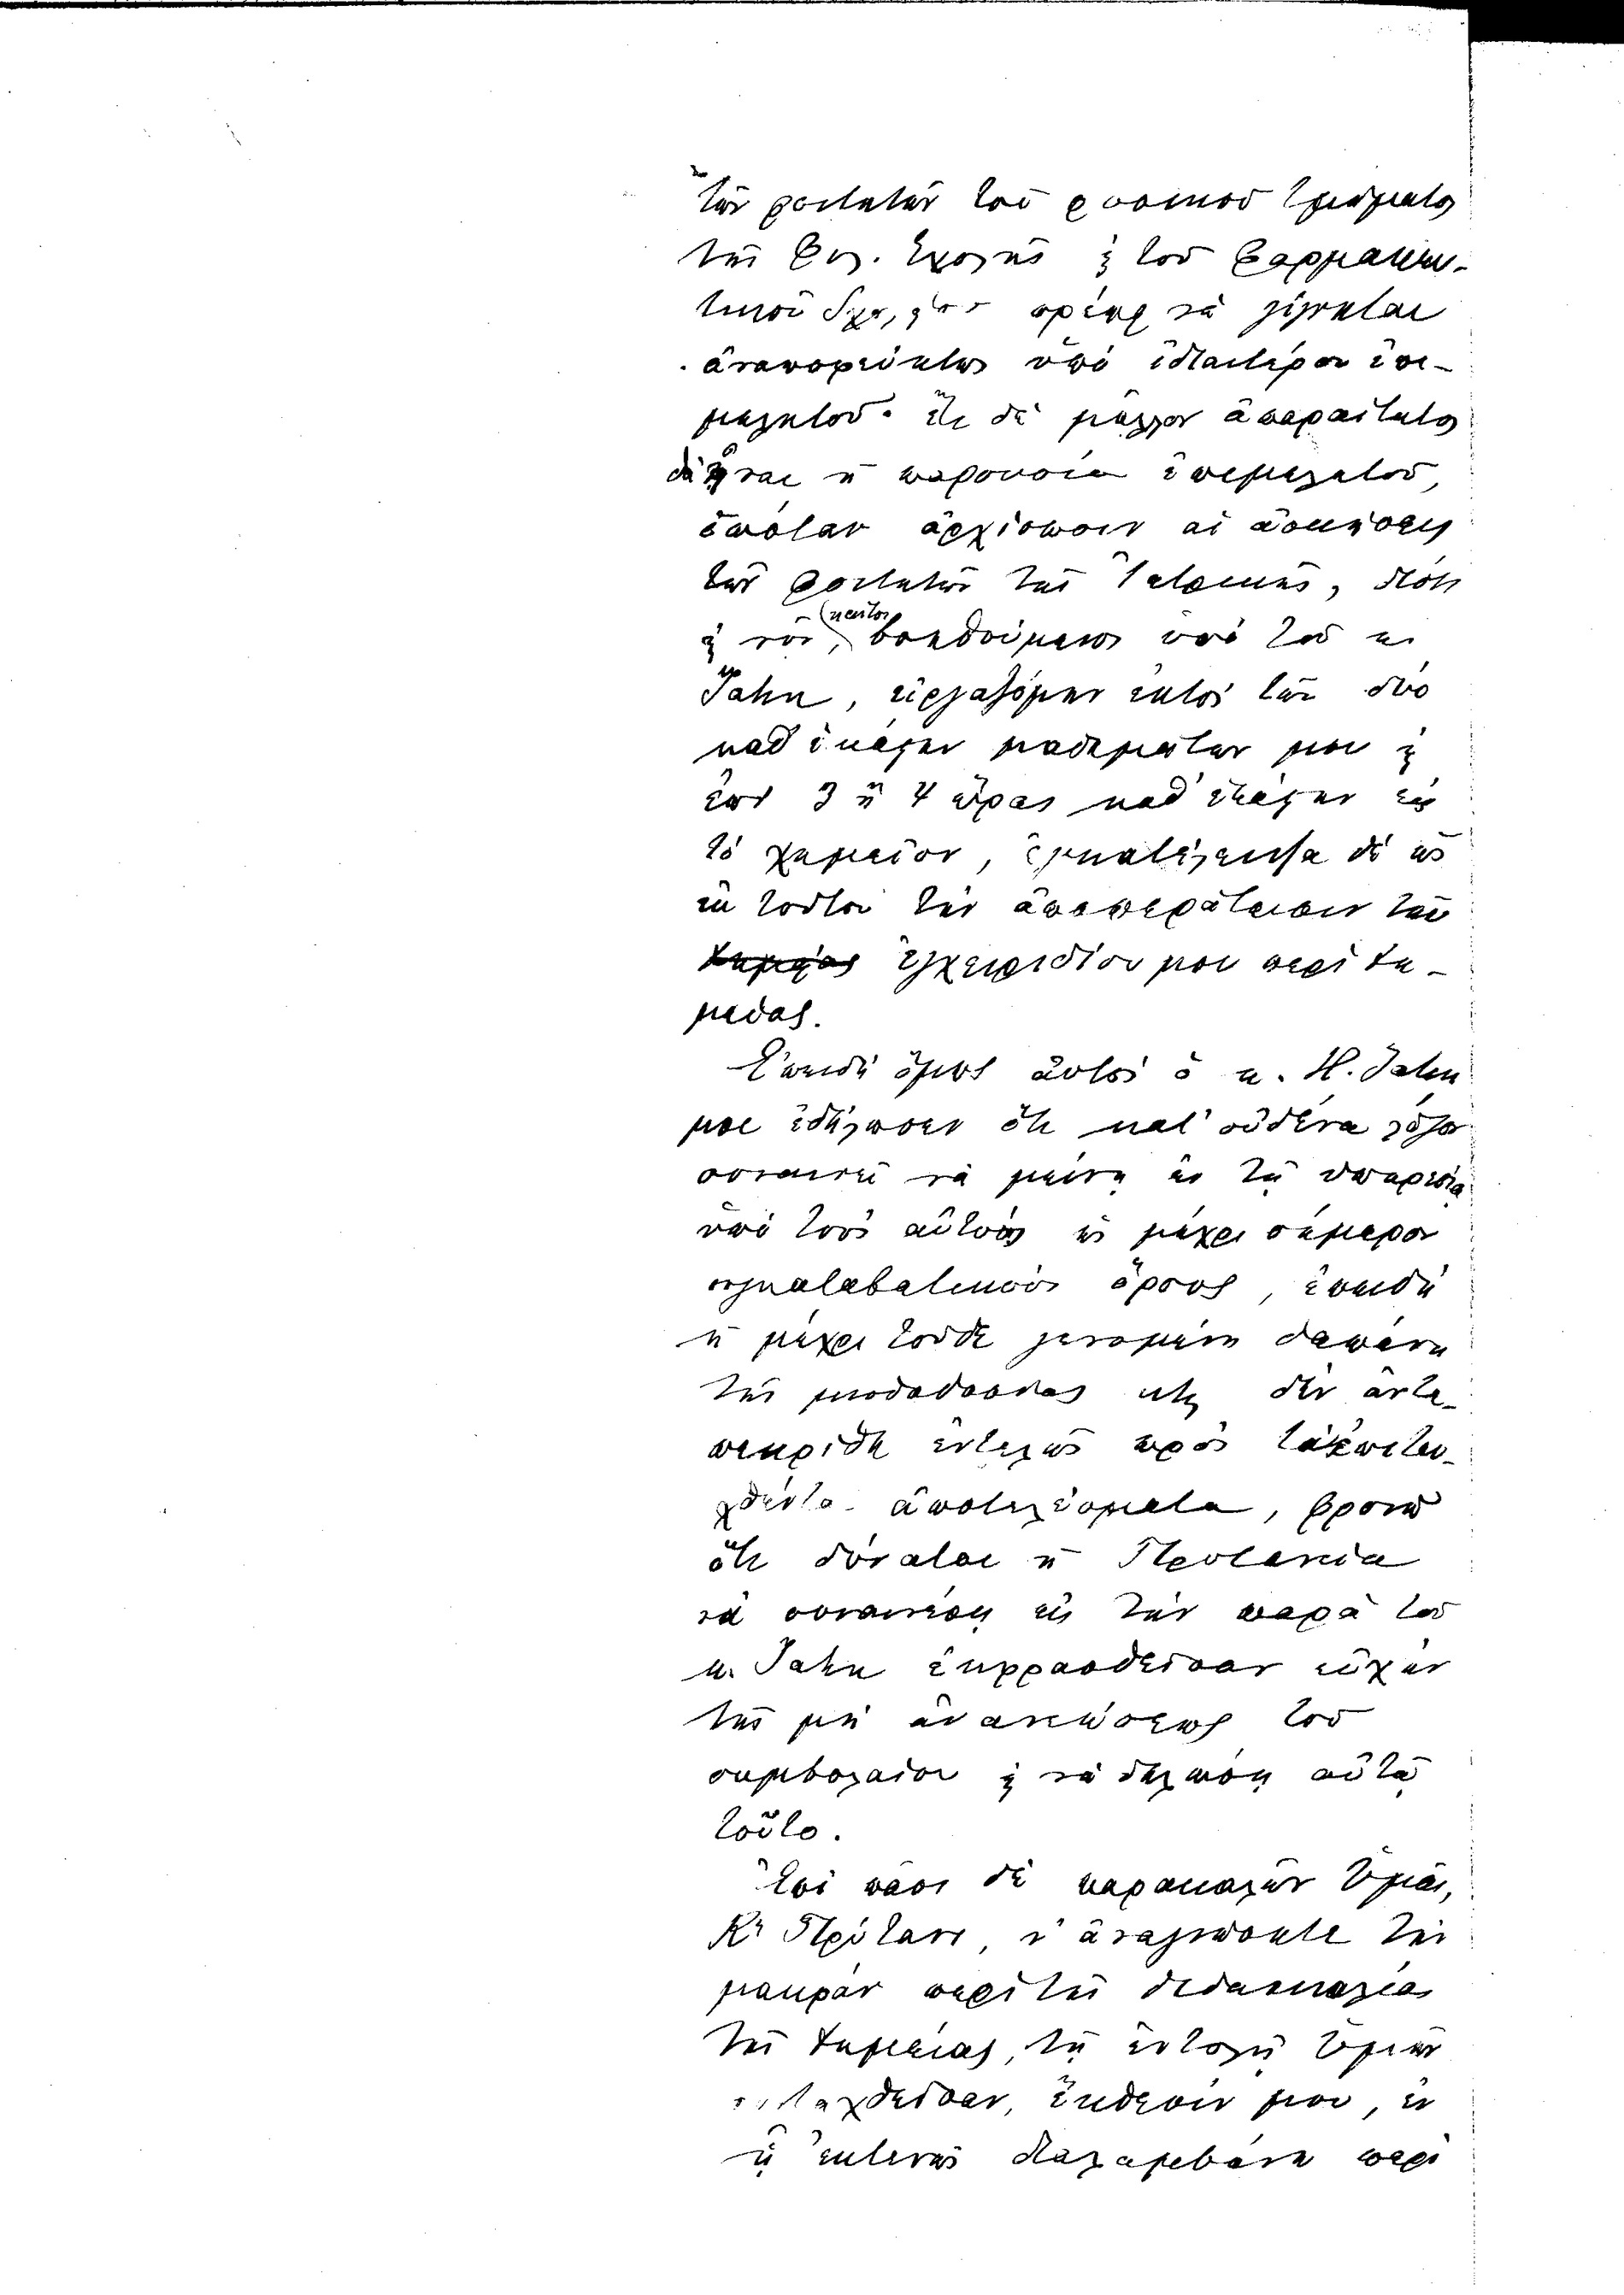 τῶν φοιτητῶν τοῦ φυσικοῦ τμήματος
τῆς Φιλ. Σχολῆς καὶ τοῦ Φαρμακευ-
τικοῦ Σχολείου πρέπει νὰ γίγνηται
ἀναποφεύκτως ὑπὸ ἰδιαιτέρου ἐπι-
μελητοῦ. ἔτι δὲ μᾶλλον ἀπαραίτητος
θὰ ἦναι ἡ παρουσία ἐπιμελητοῦ,
ὁπόταν ἀρχίσωσιν αἱ ἀσκήσεις
τῶν φοιτητῶν τῆς Ἰατρικῆς, διότι
καὶ νῦν, καίτοι βοηθούμενος ὑπὸ τοῦ κ.
Jahn, εἰργαζόμην ἐκτὸς τῶν δύο
καθ' ἑκάστην μαθημάτων μου καὶ
ἐπὶ 3 ἢ 4 ὥρας καθ' ἑκάστην εἰς
τὸ χημεῖον, ἐγκατέλειψα δὲ ὡς
ἐκ τούτου τὴν ἀποπεράτωσιν τοῦ
Χημείας ἐγχειριδίου μου περὶ Χη-
μείας.
Ἐπειδὴ ὅμως αὐτὸς ὁ κ. H. Jahn
μοι ἐδήλωσεν ὅτι κατ' οὐδένα λόγον
συναινεῖ νὰ μείνῃ ἐν τῇ ὑπηρεσίᾳ
ὑπὸ τοὺς αὐτοὺς ὡς μέχρι σήμερον
συγκαταβατικοὺς ὅρους, ἐπειδὴ
ἡ μέχρι τοῦδε γενομένη δαπάνη
τῆς μισθοδοσίας κτλ δὲν ἀντα-
πεκρίθη ἐντελῶς πρὸς τὰ ἐπιτευ-
χθέντα ἀποτελέσματα, φρονῶ
ὅτι δύναται ἡ Πρυτανεία
νὰ συναινέσῃ εἰς τὴν παρὰ τοῦ
κ. Jahn ἐκφρασθεῖσαν εὐχὴν
τῆς μὴ ἀνανεώσεως τοῦ
συμβολαίου καὶ νὰ δηλώσῃ αὐτῷ
τοῦτο.
Ἐπὶ πᾶσι δὲ παρακαλῶν Ὑμᾶς,
Κε Πρύτανι, ν' ἀναγνώσητε τὴν
μακρὰν περὶ τῆς διδασκαλίας
τῆς Χημείας, τῇ ἐντολῇ Ὑμῶν
συνταχθεῖσαν, ἔκθεσίν μου, ἐν
ᾗ ἐκτενῶς διαλαμβάνω περὶ